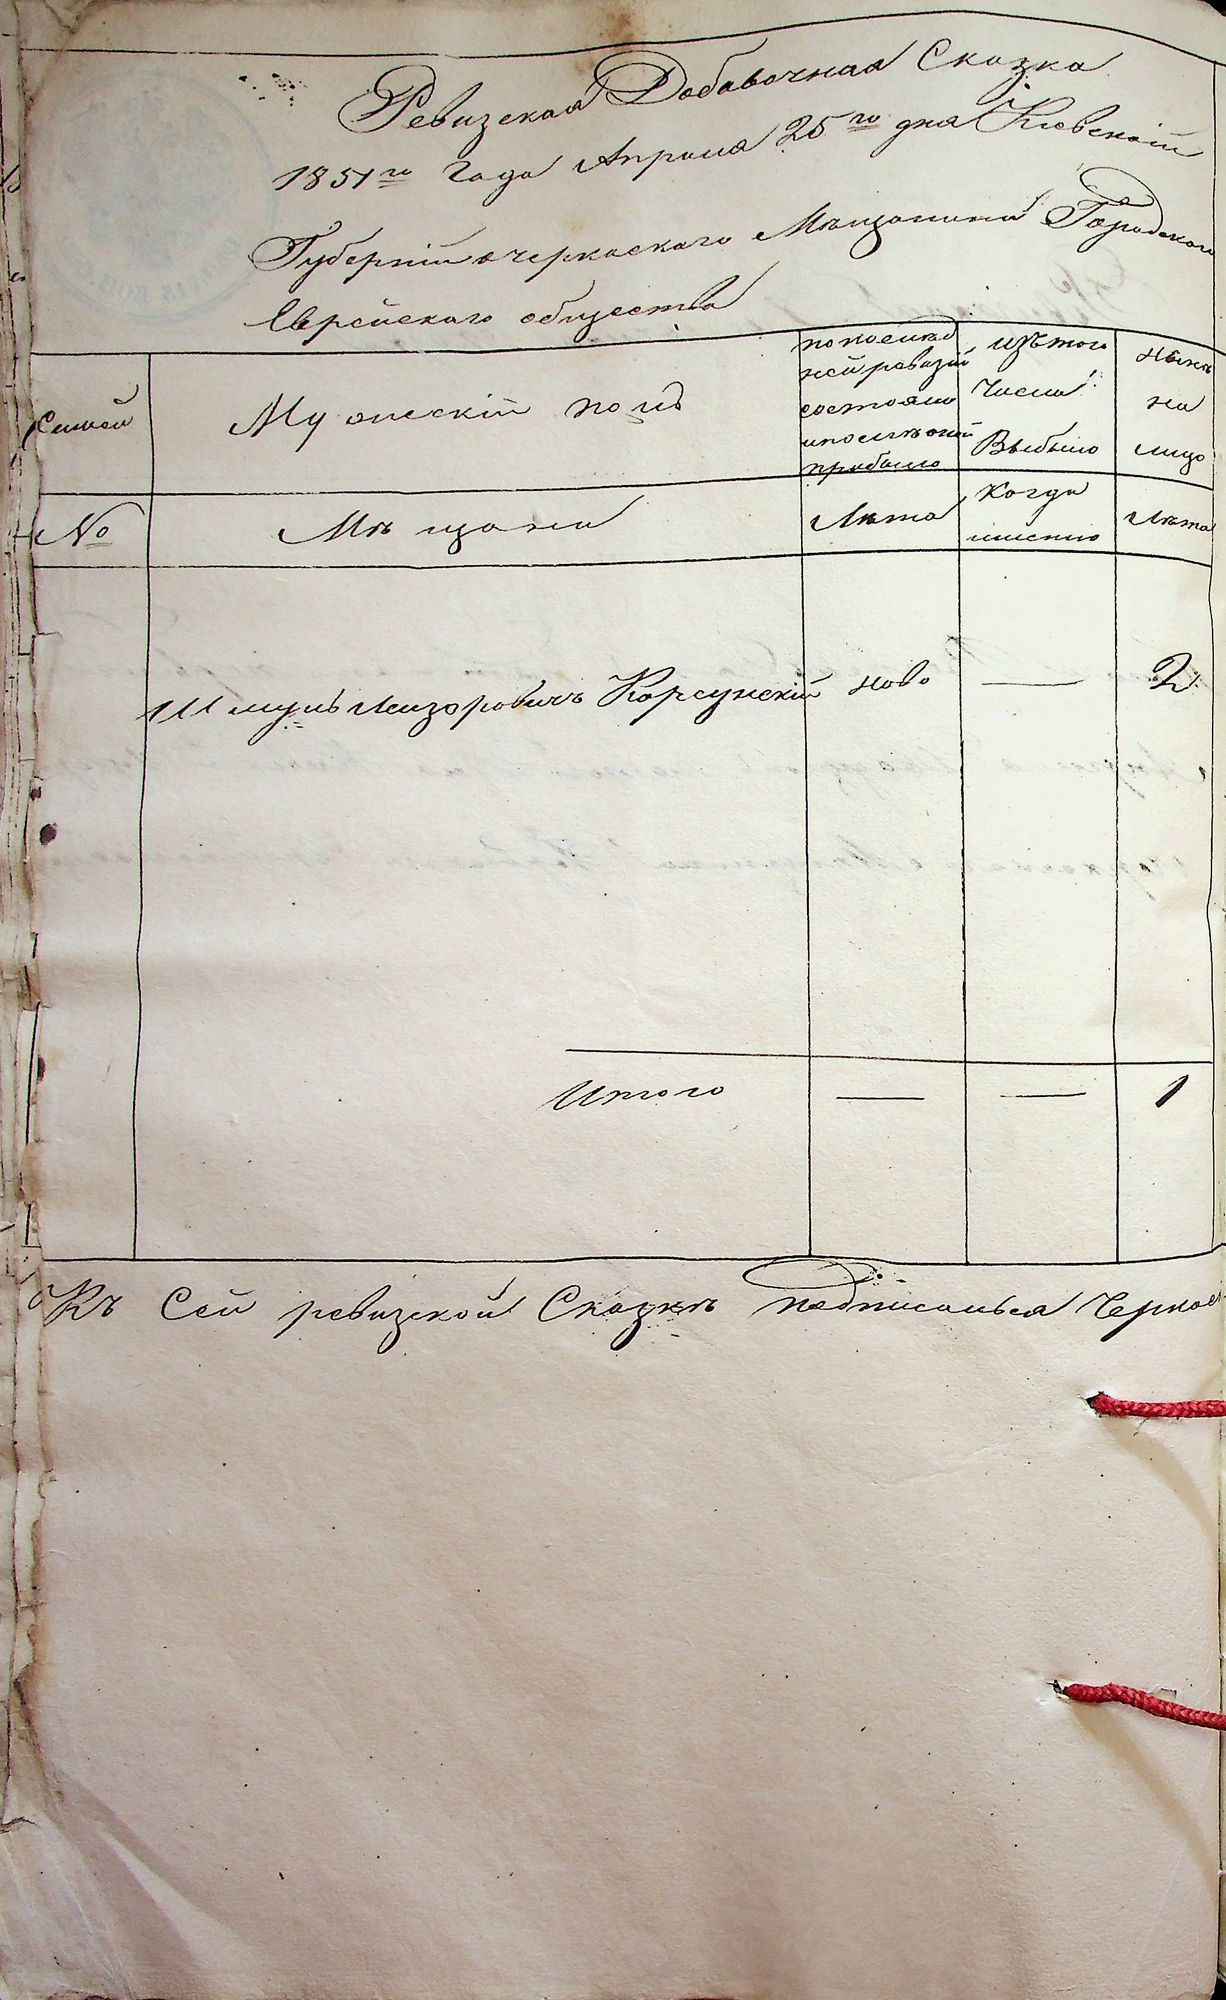 Ревизская Добавочная Сказка
1851го Года Апреля 25го дня Киевской
Губерніи Черкаского Мѣщанина Городского
Еврейского общества
Семьи
Мужескій полъ
по последней ревизіи состояло и после оной прибыло
Изъ того Числа Выбыло
Ныне на лицо
№
Мѣщане
Лѣта
Когда именно
Лѣта
Шмуль Лейзоровичъ Корсунскій ново — 2
Итого — — 1
Къ Сей ревизской Сказкѣ подписался Черкас